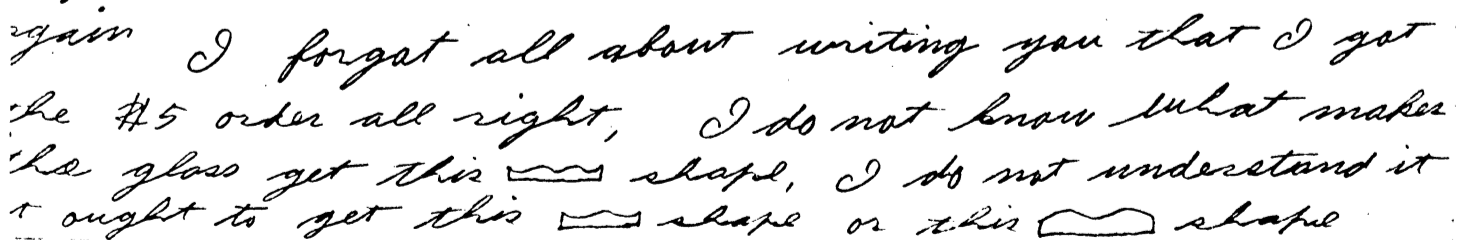 again I forgot all about writing you that I got
the #5 order all right, I do not know what makes
the glass get this shape, I do not understand it
it ought to get this shape or this shape